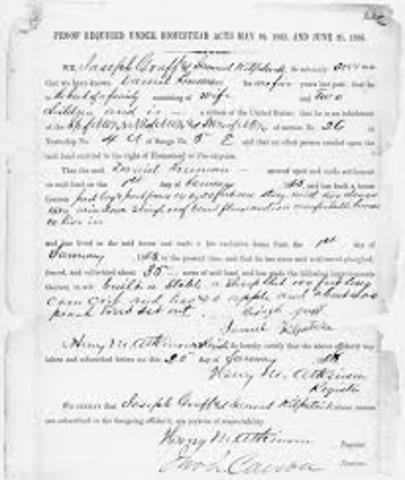 PROOF REQUIRED UNDER HOMESTEAD ACTS MAY 20, 1862, AND JUNE 21, 1866.
WE, Joseph Graff & Samuel Kilpatrick do solemnly
that we have known Daniel Freeman for years last past; that he
is the head of a family consisting of wife and two
children and is a citizen of the United States; that he is an inhabitant
of the of section No. 26
Township No. 4 N of Range No. 5 E and that no other person resided upon the
said land entitled to the right of Homestead or Pre-emption.
That the said Daniel Freeman entered upon and made settlement
on said land on the 1st day of January, 1863, and has built a house
thereon part log & part frame 14 by 20 one story, with two doors
two windows shingle roof board floors and is a comfortable house
to live in
and has lived in the said house and made it his exclusive home from the 1st day of
January 1863 to the present time, and that he has since said settlement ploughed,
fenced, and cultivated about 35 acres of said land, and has made the following improvements
thereon, to wit: built a stable, a sheep shed 100 feet long
corn crib and has 40 apple and about 400
peach trees set out.
Joseph Graff
Samuel Kilpatrick
I, Henry M. Atkinson, Register do hereby certify that the above affidavit was
taken and subscribed before me this 20 day of January 1868
Henry M. Atkinson
Register
WE CERTIFY that Joseph Graff & Samuel Kilpatrick whose names
are subscribed to the foregoing affidavit, are persons of respectability.
Henry M. Atkinson Register.
Receiver.